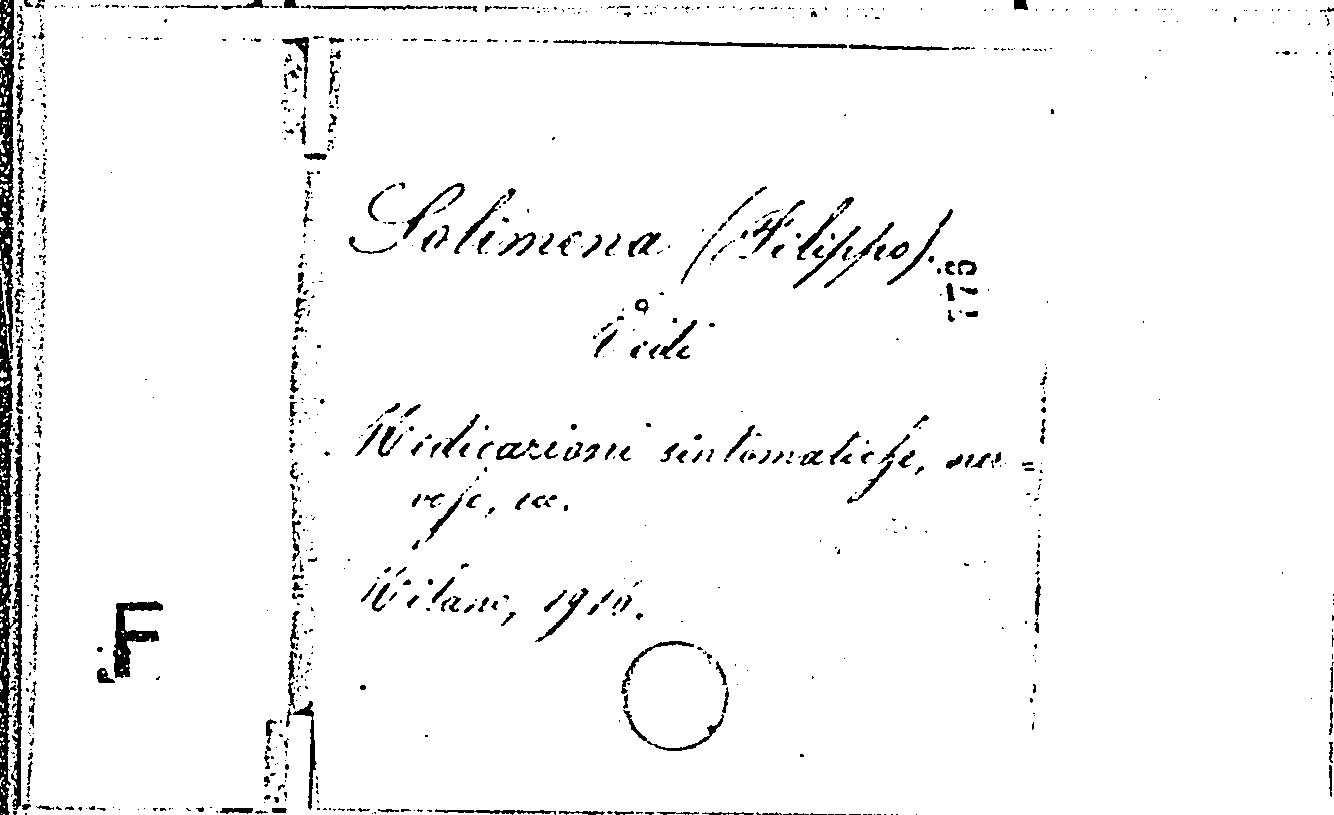 Solimena (Filippo).
Vedi
Medicazioni sintomatiche, ner=
vose, ecc.
Milano, 1916.
F